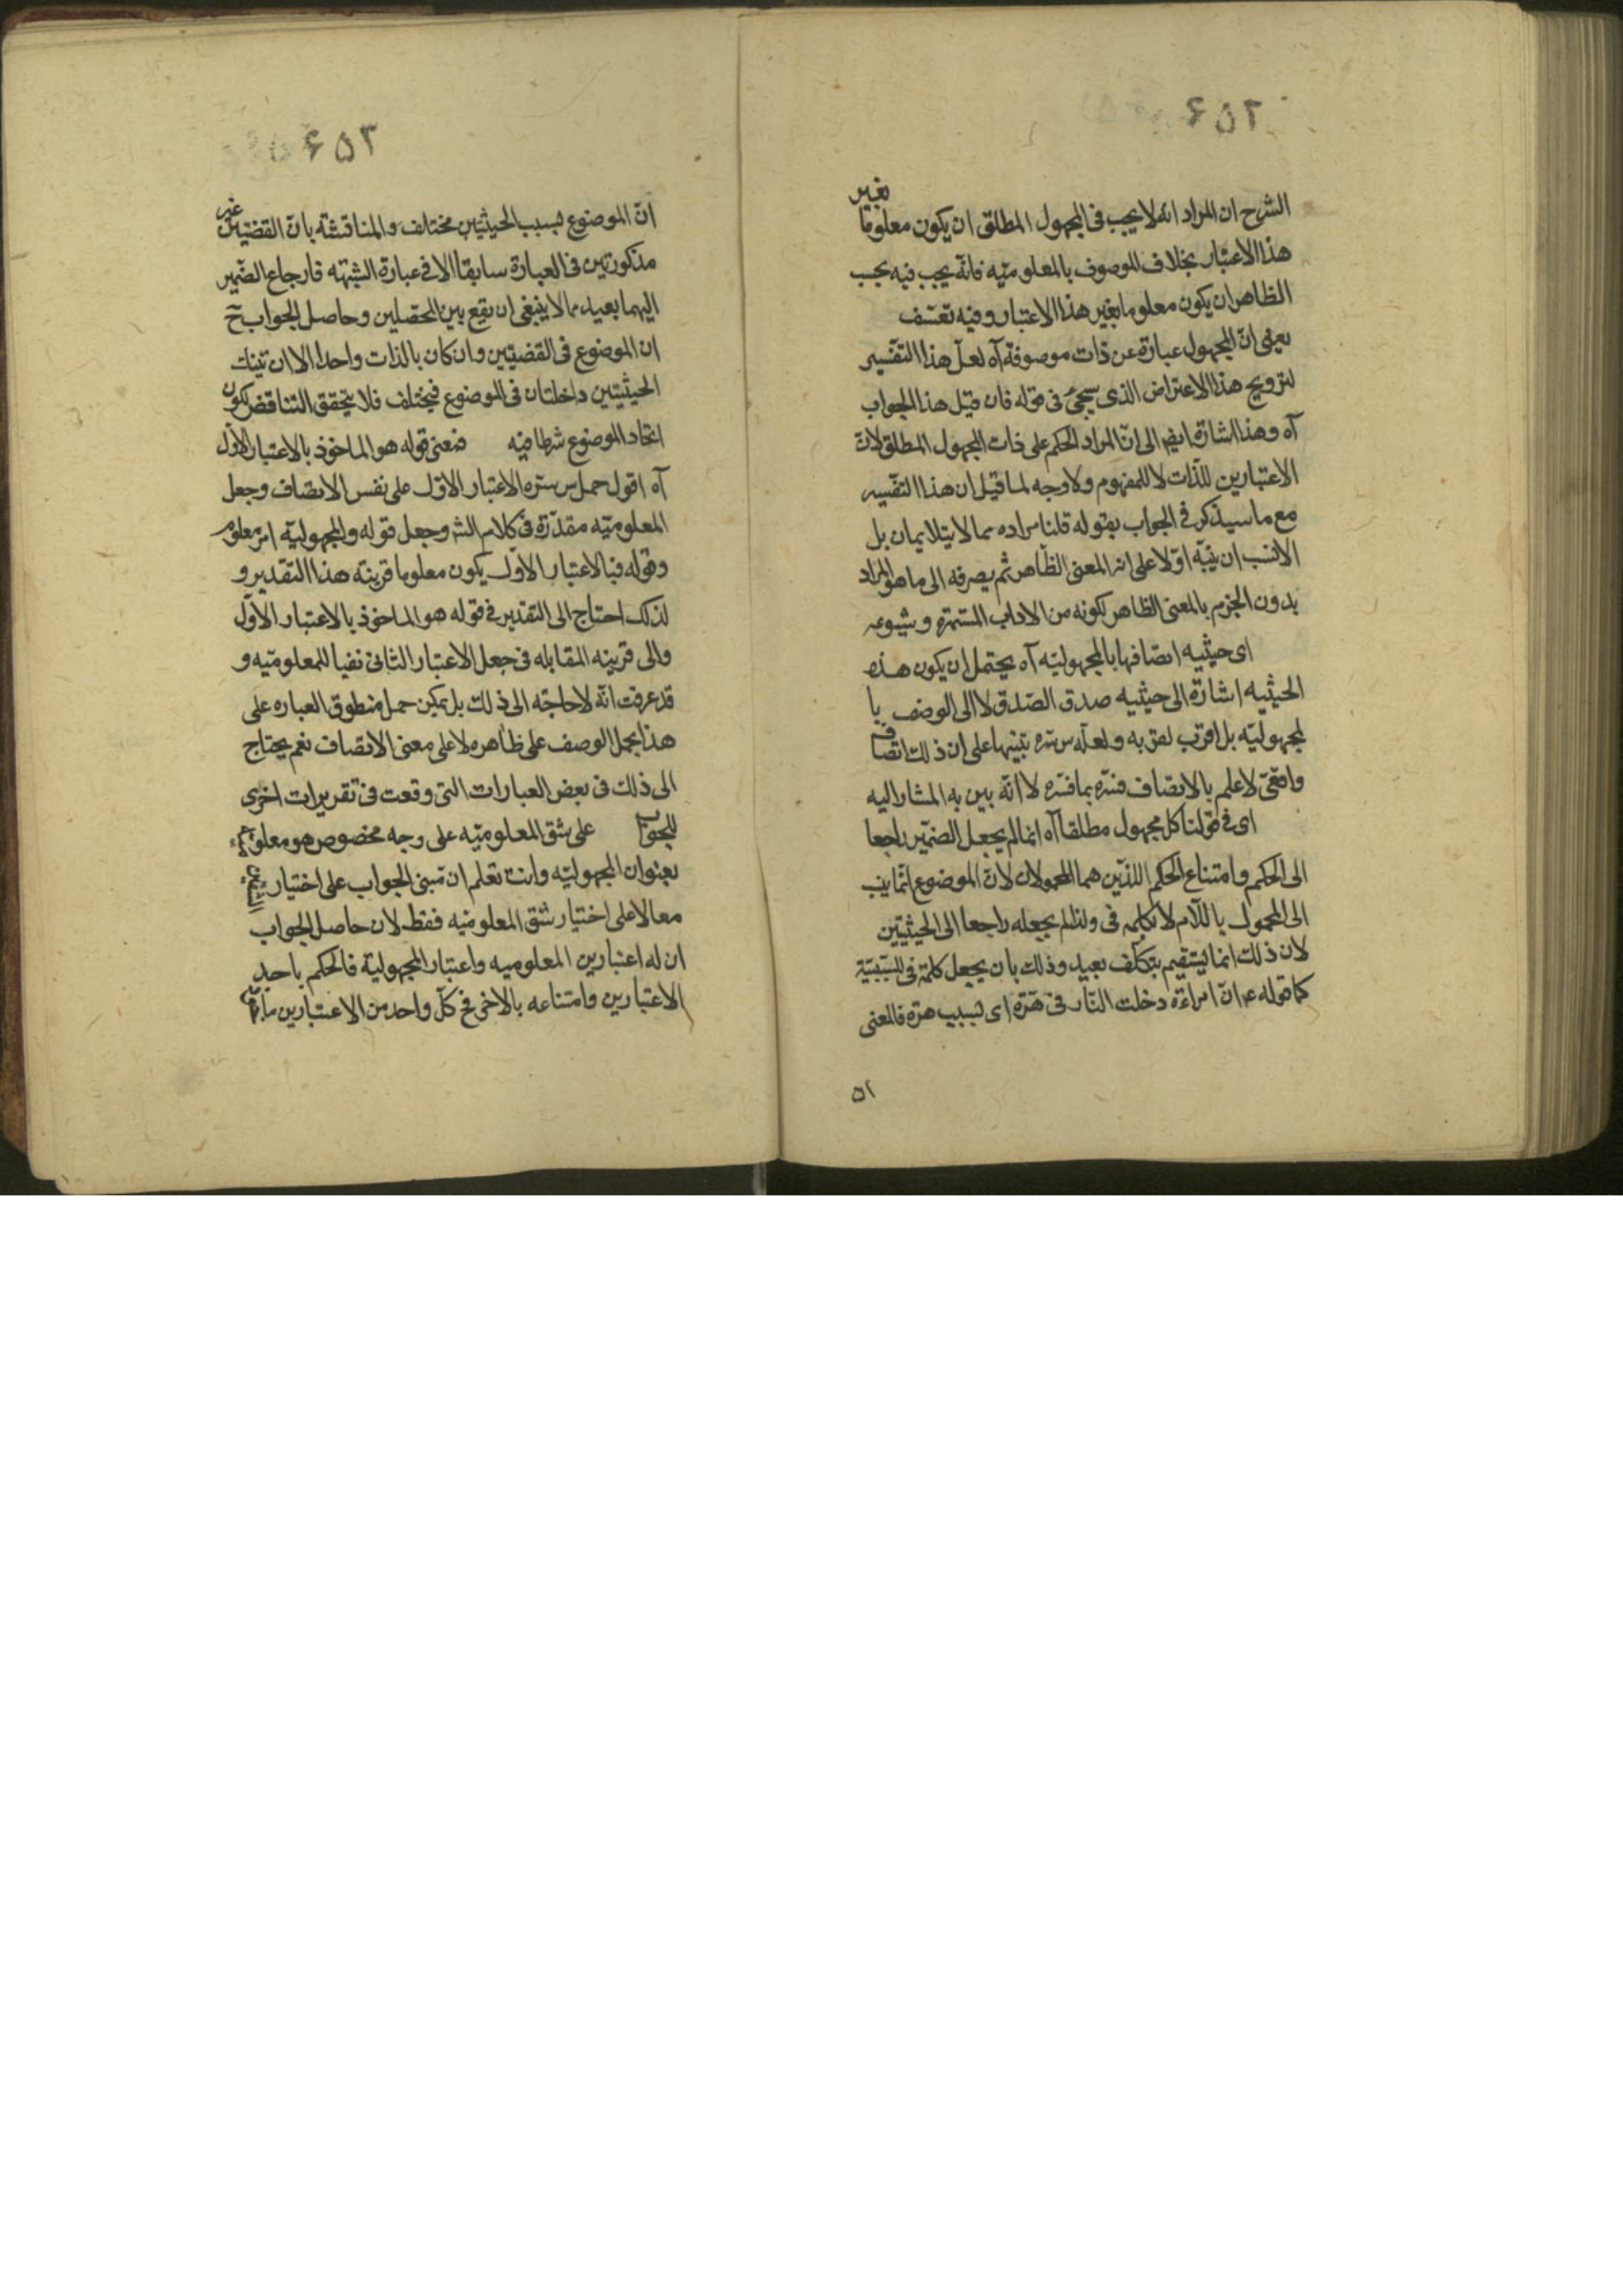 ۶۵۲
الشرح ان المراد انه لا يجب فى المجهول المطلق ان يكون معلوما بغير
هذا الاعتبار بخلاف الموصوف بالمعلوميّه فانّه يجب فيه بحسب
الظاهر ان يكون معلوما بغير هذا الاعتبار وفيه تعسّف
يعنى انّ المجهول عبارة عن ذات موصوفة آه لعلّ هذا التفسير
لترويج هذا الاعتراض الذى سيجئ فى قوله فان قيل هذا الجواب
آه وهذا اشارة ايضا الى انّ المراد الحكم على ذات المجهول المطلق لانّ
الاعتبارين للذّات لا للمفهوم ولا وجه لما قيل ان هذا التفسير
مع ما سيذكر فى الجواب بقوله قلنا مراده مما لا يتلايمان بل
الانسب ان ينبّه اوّلا على انه المعنى الظّاهر ثم يصرفه الى ما هو المراد
بدون الجزم بالمعنى الظاهر لكونه من الاداب المستمرّه وشيوعه
اى حيثيه اتصافها بالمجهوليّه آه يحتمل ان يكون هذه
الحيثيه اشارة الى حيثيه صدق الصّدق لا الى الوصف با
لمجهوليّه بل اقرب لفق به ولعلّه س سرّه تنبيها على ان ذلك اتصاف
واقعىّ لا علم بالاتصاف فسّره بما فسّره لا انّه بين به المشار اليه
اى فى قولنا كل مجهول مطلقا آه انما لم يجعل الضمير راجعا
الى الحكم وامتناع الحكم اللذين هما المحمولان لانّ الموضوع انما ينسب
الى المحمول باللّام لا بكلمه فى ولذا لم يجعله راجعا الى الحيثيتين
لان ذلك انما يستقيم بتكلّف بعيد وذلك بان يجعل كلمة فى للسّببيّة
كما قوله عم انّ امراءة دخلت النّار فى هرّة اى بسبب هرّة فالمعنى
۵۱
۶۵۳
انّ الموضوع بسبب الحيثيتين مختلف والمناقشة بانّ القضيّتين غير
مذكورتين فى العبارة سابقا الا فى عبارة الشبهه فارجاع الضّمير
اليهما بعيد مما لا ينبغى ان يقع بين المحصّلين وحاصل الجواب ح
ان الموضوع فى القضيتين وان كان بالذات واحدا الا ان تينك
الحيثيتين داخلتان فى الموضوع فيختلف فلا يتحقق التناقض لكون
اتحاد الموضوع شرطا فيه فمعنى قوله هو الماخوذ بالاعتبار الاوّل
آه اقول حمل س سرّه الاعتبار الاوّل على نفس الاتصاف وجعل
المعلوميّه مقدّرة فى كلام الشر وجعل قوله والمجهوليّه امر معلوم
وقوله فبالاعتبار الاوّل يكون معلوما قرينه هذا التقدير و
لذلك احتاج الى التقدير فى قوله هو الماخوذ بالاعتبار الاوّل
والى قرينه المقابله فى جعل الاعتبار الثانى نفيا للمعلوميّه و
قد عرفت انّه لا حاجة الى ذلك بل يمكن حمل منطوق العباره على
هذا بحمل الوصف على ظاهره لا على معنى الاتصاف نعم يحتاج
الى ذلك فى بعض العبارات التى وقعت فى تقريرات اخرى
للجواب على شق المعلوميّه على وجه مخصوص هو معلوم
بعنوان المجهوليّه وانت تعلم ان مبنى الجواب على اختيار
معا لا على اختيار شق المعلوميّه فقط لان حاصل الجواب
ان له اعتبارين المعلوميه واعتبار المجهولية فالحكم باحد
الاعتبارين وامتناعه بالاخر فح كلّ واحد من الاعتبارين